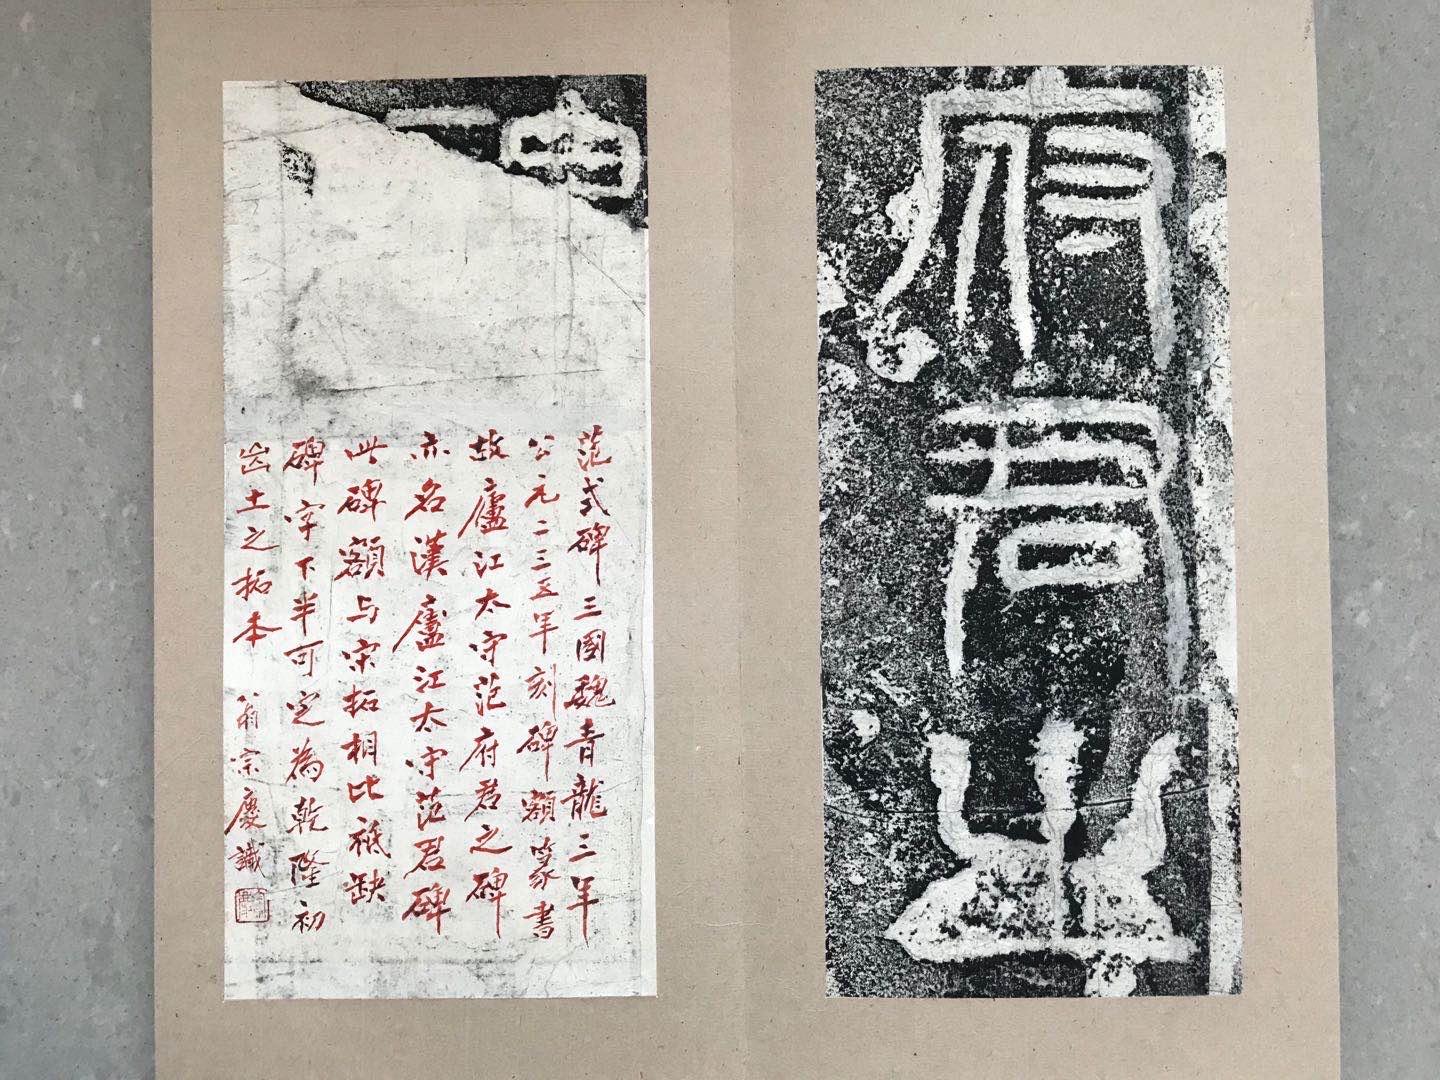 府君之
范式碑三國魏青龍三年
公元二三五年刻碑額篆書
故廬江太守范府君之碑
亦名漢廬江太守范君碑
此碑額与宋拓相比祗缺
碑字下半可定為乾隆初
出土之拓本
翁宗慶識